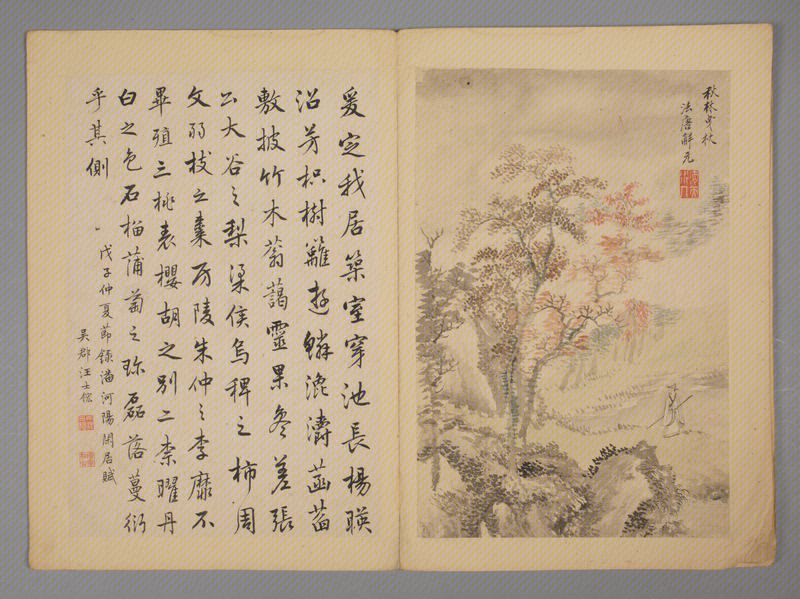 秋林曳杖
法唐解元
爰定我居築室穿池長楊暎
沼芳枳樹籬遊鱗瀺灂菡萏
敷披竹木蓊藹靈果參差張
公大谷之梨梁侯烏椑之柿周
文弱枝之棗房陵朱仲之李靡不
畢殖三桃表櫻胡之別二柰曜丹
白之色石榴蒲萄之珍磊落蔓衍
乎其側
戊子仲夏節錄潘河陽閒居賦
吳郡汪士鋐